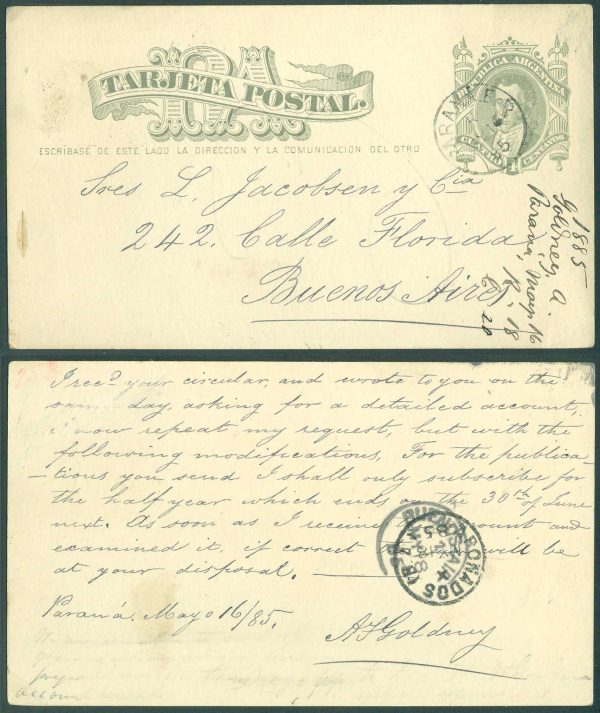 RA
TARJETA POSTAL.
REPÚBLICA ARGENTINA
CENTAVOS 4 CENTAVOS
PARANA E.R.
ESCRÍBASE DE ESTE LADO LA DIRECCION Y LA COMUNICACION DEL OTRO
Sres L. Jacobsen y Cia
242. Calle Florida
Buenos Aires
1885
Goldney, A.
Paraná, Mayo 16
R. 18
C. 20
I recd your circular, and wrote to you on the
same day, asking for a detailed account,
I now repeat my request, but with the
following modifications. For the publica-
tions you send I shall only subscribe for
the half year which ends on the 30th of June
next. As soon as I receive account and
examined it, if correct will be
at your disposal.
Paraná. Mayo 16/85.
A F Goldney
BUZONISTAS
ABONADOS
account